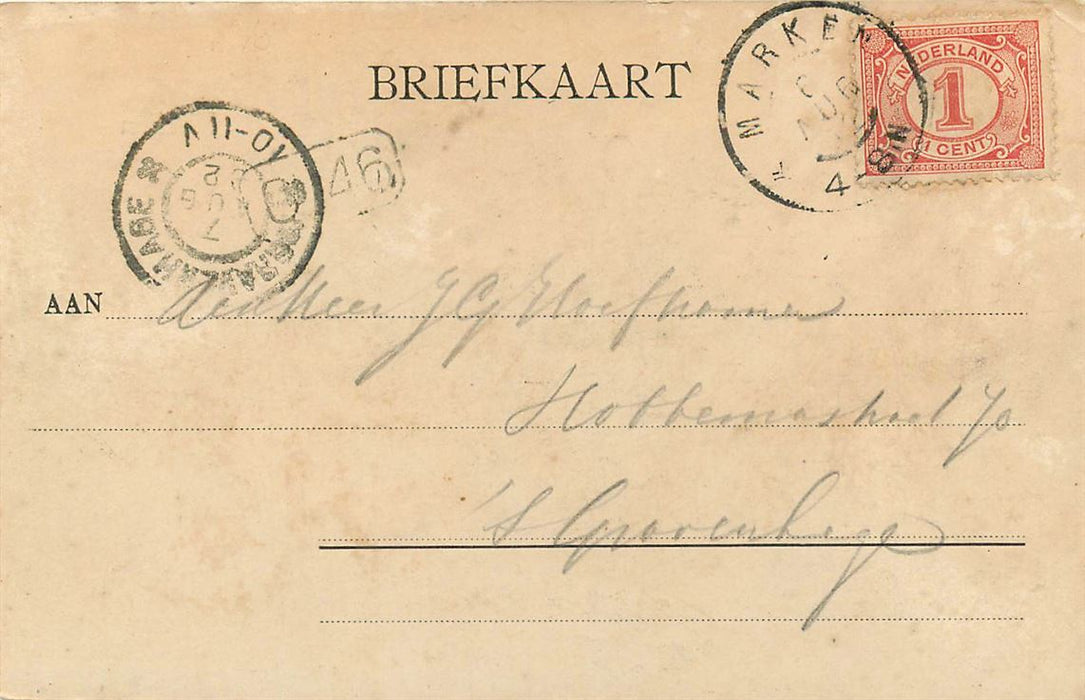 BRIEFKAART
MARKEN
6 AUG
4-8N
NEDERLAND
1
1 CENT
'S GRAVENHAGE
7 AUG
10-11V
46
AAN
den Heer J G
Hobbemastraat
's Gravenhage